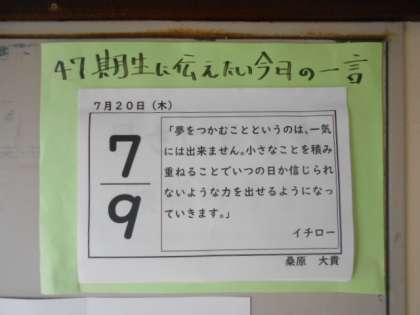 47期生に伝えたい今日の一言
7月20日（木）
7
9
「夢をつかむことというのは、一気
には出来ません。小さなことを積み
重ねることでいつの日か信じられ
ないような力を出せるようになっ
ていきます。」
イチロー
桑原　大貴